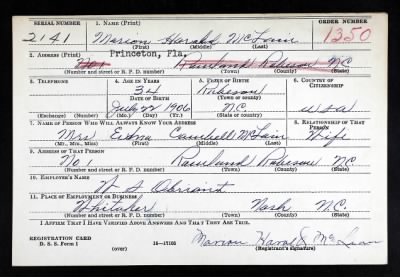 SERIAL NUMBER 1. NAME (Print) ORDER NUMBER
2141 Marion Harold McLain 1350
(First) (Middle) (Last)
2. ADDRESS (Print) Princeton, Fla.
No 1 Rowland Robeson N.C.
(Number and street or R. F. D. number) (Town) (County) (State)
3. TELEPHONE 4. AGE IN YEARS 5. PLACE OF BIRTH 6. COUNTRY OF CITIZENSHIP
34 Robeson
DATE OF BIRTH (Town or county)
July 22 1906 N.C. USA
(Exchange) (Number) (Mo.) (Day) (Yr.) (State or country)
7. NAME OF PERSON WHO WILL ALWAYS KNOW YOUR ADDRESS 8. RELATIONSHIP OF THAT PERSON
Mrs Edna Campbell McLain Wife
(Mr., Mrs., Miss) (First) (Middle) (Last)
9. ADDRESS OF THAT PERSON
No 1 Rowland Robeson N.C.
(Number and street or R. F. D. number) (Town) (County) (State)
10. EMPLOYER'S NAME
11. PLACE OF EMPLOYMENT OR BUSINESS
Whitaker Nash N.C.
(Number and street or R. F. D. number) (Town) (County) (State)
I AFFIRM THAT I HAVE VERIFIED ABOVE ANSWERS AND THAT THEY ARE TRUE.
REGISTRATION CARD
D. S. S. Form 1 (over) 16—17105 Marion Harold McLain
(Registrant's signature)